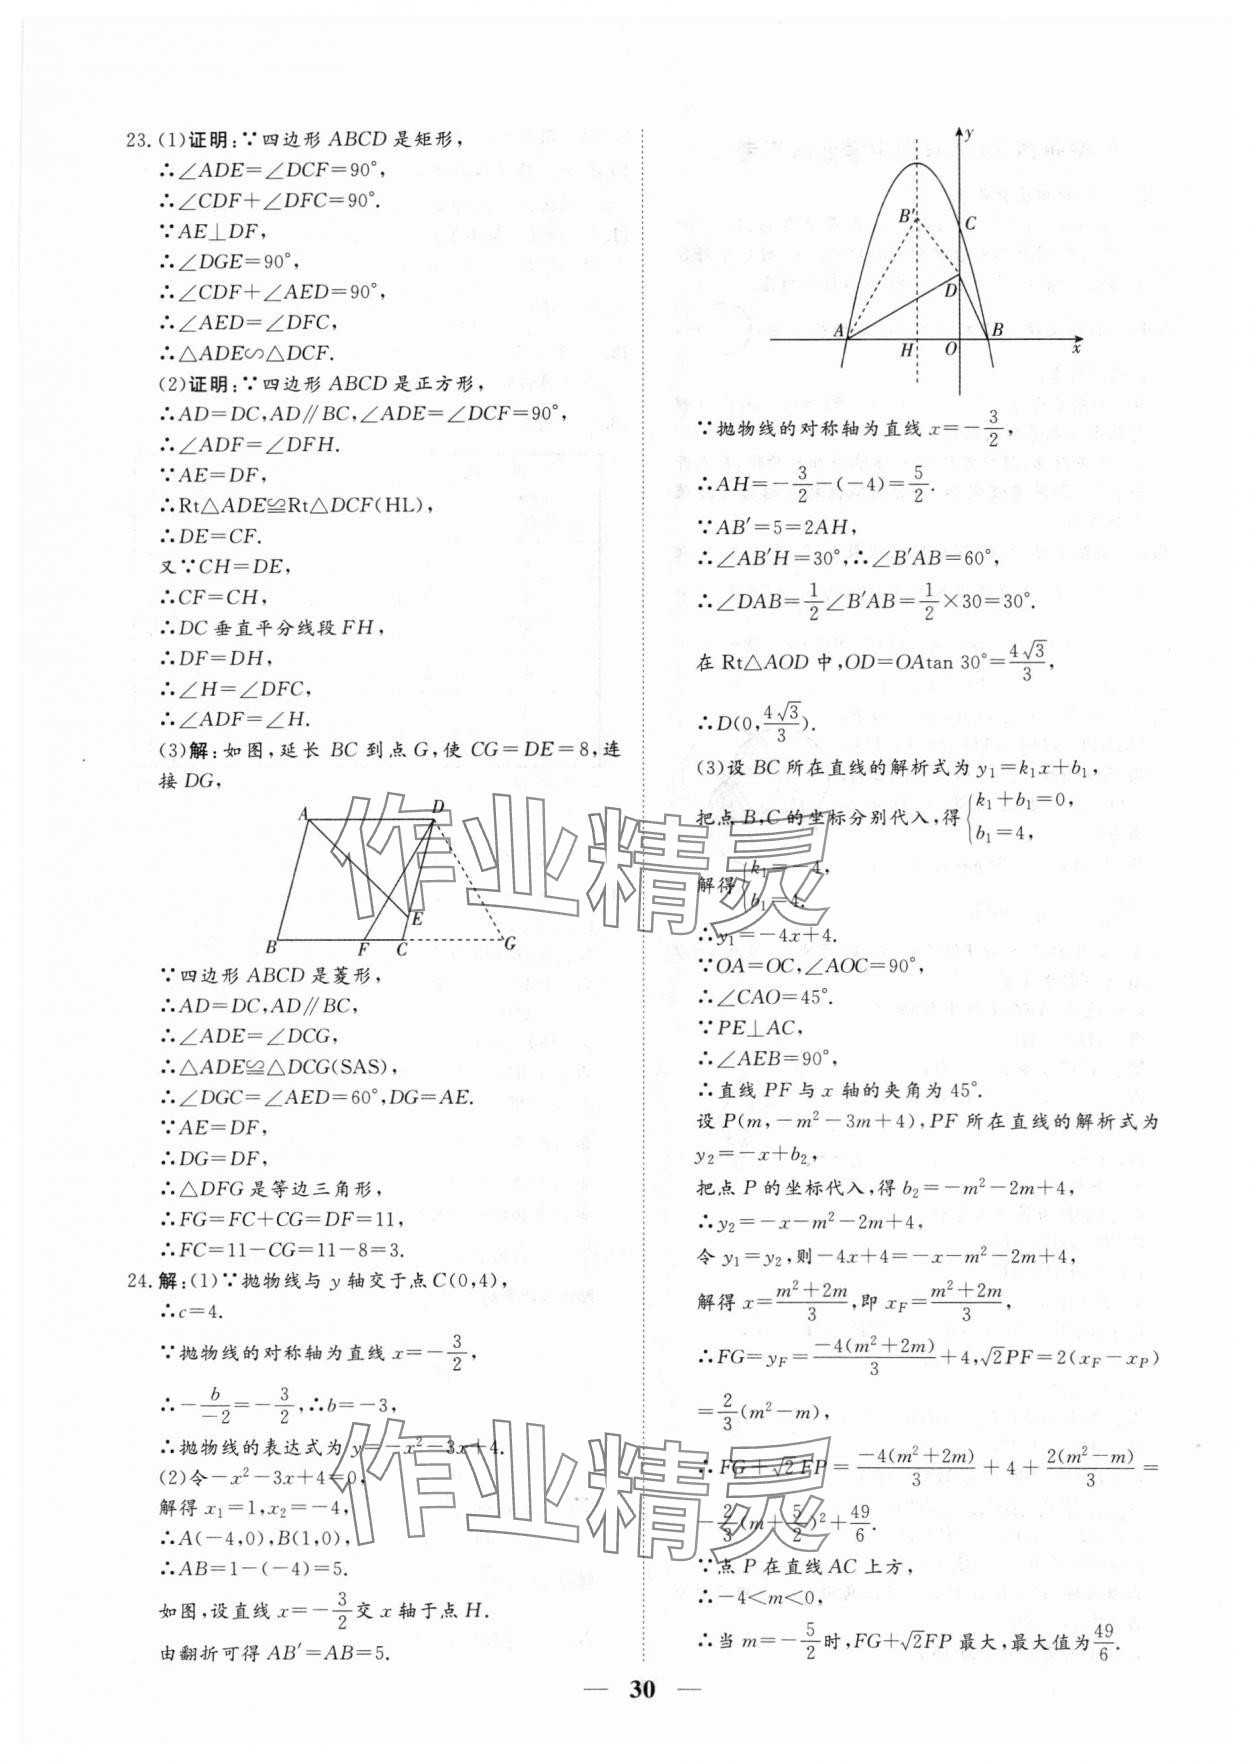 23. (1)证明:∵四边形 ABCD 是矩形,
∴∠ADE=∠DCF=90°,
∴∠CDF+∠DFC=90°.
∵AE⊥DF,
∴∠DGE=90°,
∴∠CDF+∠AED=90°,
∴∠AED=∠DFC,
∴△ADE∽△DCF.
(2)证明:∵四边形 ABCD 是正方形,
∴AD=DC,AD∥BC,∠ADE=∠DCF=90°,
∴∠ADF=∠DFH.
∵AE=DF,
∴Rt△ADE≌Rt△DCF(HL),
∴DE=CF.
又∵CH=DE,
∴CF=CH,
∴DC 垂直平分线段 FH,
∴DF=DH,
∴∠H=∠DFC,
∴∠ADF=∠H.
(3)解:如图,延长 BC 到点 G,使 CG=DE=8,连
接 DG,
A D
E
B F C G
∵四边形 ABCD 是菱形,
∴AD=DC,AD∥BC,
∴∠ADE=∠DCG,
∴△ADE≌△DCG(SAS),
∴∠DGC=∠AED=60°,DG=AE.
∵AE=DF,
∴DG=DF,
∴△DFG 是等边三角形,
∴FG=FC+CG=DF=11,
∴FC=11-CG=11-8=3.
24. 解:(1)∵抛物线与 y 轴交于点 C(0,4),
∴c=4.
∵抛物线的对称轴为直线 x=-3/2,
∴-b/-2=-3/2,∴b=-3,
∴抛物线的表达式为 y=-x²-3x+4.
(2)令-x²-3x+4=0,
解得 x₁=1,x₂=-4,
∴A(-4,0),B(1,0),
∴AB=1-(-4)=5.
如图,设直线 x=-3/2交 x 轴于点 H.
由翻折可得 AB′=AB=5.
y
B′ C
D
A B
H O x
∵抛物线的对称轴为直线 x=-3/2,
∴AH=-3/2-(-4)=5/2.
∵AB′=5=2AH,
∴∠AB′H=30°,∴∠B′AB=60°,
∴∠DAB=1/2∠B′AB=1/2×30=30°.
在 Rt△AOD 中,OD=OAtan 30°=4√3/3,
∴D(0,4√3/3).
(3)设 BC 所在直线的解析式为 y₁=k₁x+b₁,
把点 B,C 的坐标分别代入,得{k₁+b₁=0,
b₁=4,
解得{k₁=-4,
b₁=4.
∴y₁=-4x+4.
∵OA=OC,∠AOC=90°,
∴∠CAO=45°.
∵PE⊥AC,
∴∠AEB=90°,
∴直线 PF 与 x 轴的夹角为 45°.
设 P(m,-m²-3m+4),PF 所在直线的解析式为
y₂=-x+b₂,
把点 P 的坐标代入,得 b₂=-m²-2m+4,
∴y₂=-x-m²-2m+4,
令 y₁=y₂,则-4x+4=-x-m²-2m+4,
解得 x=m²+2m/3,即 x_F=m²+2m/3,
∴FG=y_F=-4(m²+2m)/3+4,√2PF=2(x_F-x_P)
=2/3(m²-m),
∴FG+√2FP=-4(m²+2m)/3+4+2(m²-m)/3=
-2/3(m+5/2)²+49/6.
∵点 P 在直线 AC 上方,
∴-4<m<0,
∴当 m=-5/2时,FG+√2FP 最大,最大值为49/6.
作业精灵
作业精灵
— 30 —